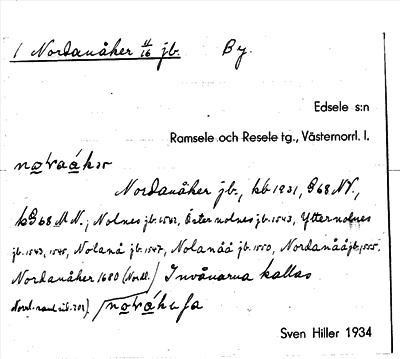 1 Nordanåker 4/16 jb. By.
Edsele s:n
Ramsele och Resele tg., Västernorrl. l.
Nordanåker jb., kb 1931, G68 NV.,
Nolnes jb. 1542, Öster nolnes jb. 1543, Ytter nolnes
jb. 1543, 1545, Nolanå jb. 1547, Nolanåå jb. 1550, Nordanåå jb. 1555.
Nordanåker 1680 (Nordl. Invånarna kallas
Sven Hiller 1934